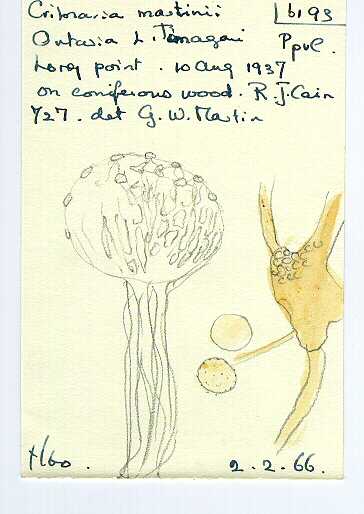 Cribraria martinii
6193
Ontario L. Timagami
P pul.
Long point. 10 Aug 1937
on coniferous wood. R.F. Cain
727. det G. W. Martin
x160.
2.2.66.